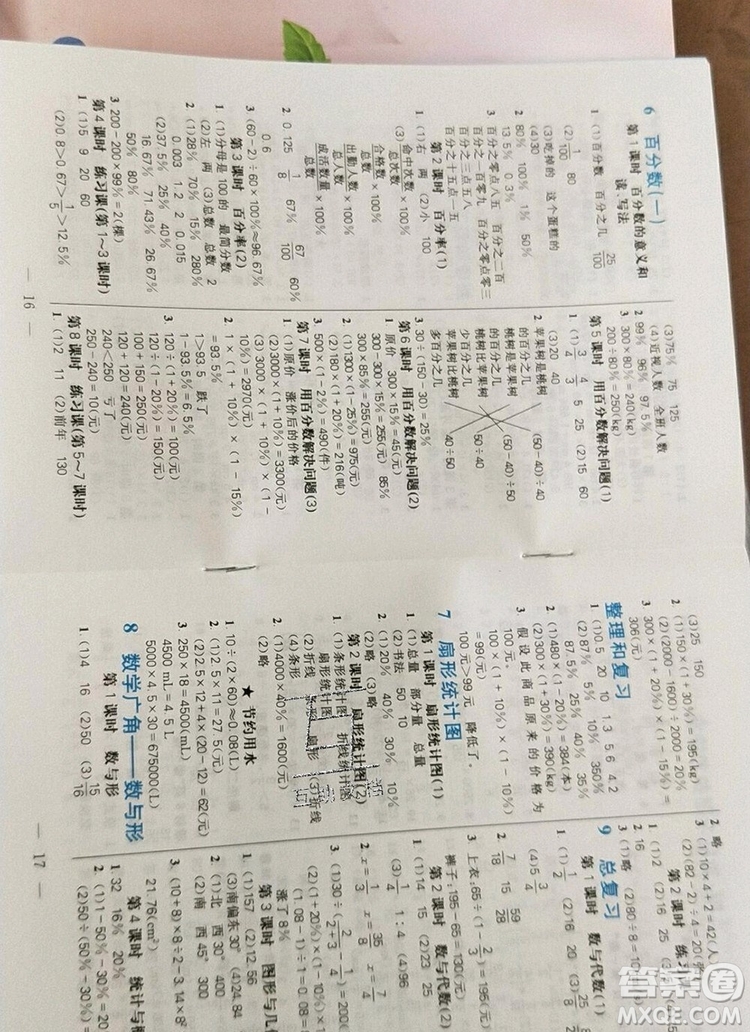 6 百分数(一)
第1课时 百分数的意义和
读、写法
1 (1)百分数 百分之几 25/100
(2)1/100 80
(3)吃掉的 这个蛋糕的
(4)30
2 80% 100% 1% 50%
13.5% 0.3%
3 百分之零点八五 百分之二百
百分之一百零九 百分之零点零三
百分之三点五八
百分之十五点五
第2课时 百分率(1)
1 (1)右 两 (2)小 100
(3)命中次数/总次数×100%
合格数/总数×100%
出勤人数/总人数×100%
成活数量/总数量×100%
2 0.125 1/8 67% 67/100 60%
0.6
3 (60-2)÷60×100%≈96.67%
第3课时 百分率(2)
1 (1)分母是100的 最简分数
(2)左 两 (3)总数 总数 2
2 (1)28% 70% 15% 280%
0.003 1.2 2 0.015
(2)37.5% 25% 40%
16.67% 71.43% 26.67%
50% 80%
3 200-200×99%=2(棵)
第4课时 练习课(第1~3课时)
1 (1)5 9 20 60
(2)0.8>0.67>1/5>12.5%
— 16 —
(3)75% 75 125
(4)近视人数 全班人数
2 99% 96% 97.5%
3 300×80%=240(kg)
200÷80%=250(kg)
第5课时 用百分数解决问题(1)
1 (1)3/4 4/3 5 25 (2)15 60
(3)20 40
2 苹果树是桃树
的百分之几
桃树是苹果树
的百分之几
桃树比苹果树
少百分之几
苹果树比桃树
多百分之几
(50-40)÷40
(50-40)÷50
50÷40
40÷50
3 30÷(150-30)=25%
第6课时 用百分数解决问题(2)
1 原价 300×15%=45(元)
300-300×15%=255(元) 85%
300×85%=255(元)
2 (1)1300×(1-25%)=975(元)
(2)180×(1+20%)=216(吨)
3 500×(1-2%)=490(件)
第7课时 用百分数解决问题(3)
1 (1)原价 涨价后的价格
(2)3000×(1+10%)=3300(元)
(3)3000×(1+10%)×(1-
10%)=2970(元)
2 1×(1+10%)×(1-15%)
=93.5%
1>93.5% 跌了
1-93.5%=6.5%
3 120÷(1+20%)=100(元)
120÷(1-20%)=150(元)
100+150=250(元)
120+120=240(元)
240<250 亏了
250-240=10(元)
第8课时 练习课(第5~7课时)
1 (1)2 11 (2)前年 130
(3)25 150
2 (1)150×(1+30%)=195(kg)
(2)(2000-1600)÷2000=20%
3 300×(1+20%)×(1-15%)=
306(元)
整理和复习
1 (1)0.5 20 10 1.3 5.6 4.2
(2)87% 5% 10% 350%
87.5% 25% 40% 35%
2 (1)480×(1-20%)=384(本)
(2)300×(1+30%)=390(kg)
3 假设此商品原来的价格为
100元。
100×(1+10%)×(1-10%)
=99(元)
100元>99元 降低了。
7 扇形统计图
第1课时 扇形统计图(1)
1 (1)总量 部分量 总量
(2)书法 50 10
2 (1)20% 40% 30% 10%
(2)略 (3)略
第2课时 扇形统计图(2)
1 (1)条形统计图 折线统计图
扇形统计图
(2)折线 条形 扇形 (3)折线
(4)条形
2 (1)4000×40%=1600(元)
(2)略
★节约用水
1 10÷(2×60)≈0.08(L)
2 (1)2.5×11=27.5(元)
(2)2.5×12+4×(20-12)=62(元)
3 250×18=4500(mL)
4500 mL=4.5 L
5000×4.5×30=675000(L)
8 数学广角——数与形
第1课时 数与形
1 (1)4 16 (2)50 (3)15/16
— 17 —
2 略
3 (1)10×4+2=42(人)
(2)(82-2)÷4=20(
第2课时 练习
1 (1)2 (2)16 25
2 16
3 (1)略 (2)80÷8=10
9 总复习
第1课时 数与代数(1)
1 (1)1/2 (2)16 20 (3)
(4)5 3/4
2 7/18 15/28 59
3 上衣:65÷(1-2/3)=195(元)
裤子:195-65=130(元)
第2课时 数与代数(2)
1 (1)14 15 (2)23 25
(3)1/4 1:4 (4)96
2 x=3/4 x=35/8 x=7
3 (1)30÷(2/3-1/4
(2)(1+20%)×(1-
(1.08-1)÷1=0.08=
涨了8%
第3课时 图形与几
1 (1)157 (2)12.56
(3)南偏东30° (4)24.84
2 (1)北 西 30° 400
(2)南 西 45° 300
3 (10+8)×8÷2-3.14×8²
21.76(cm²)
第4课时 统计与概
1 32 16% 20%
2 (1)1-50%-30%=20
(2)50÷(50%-30%)=
答案圈
MXQE.COM